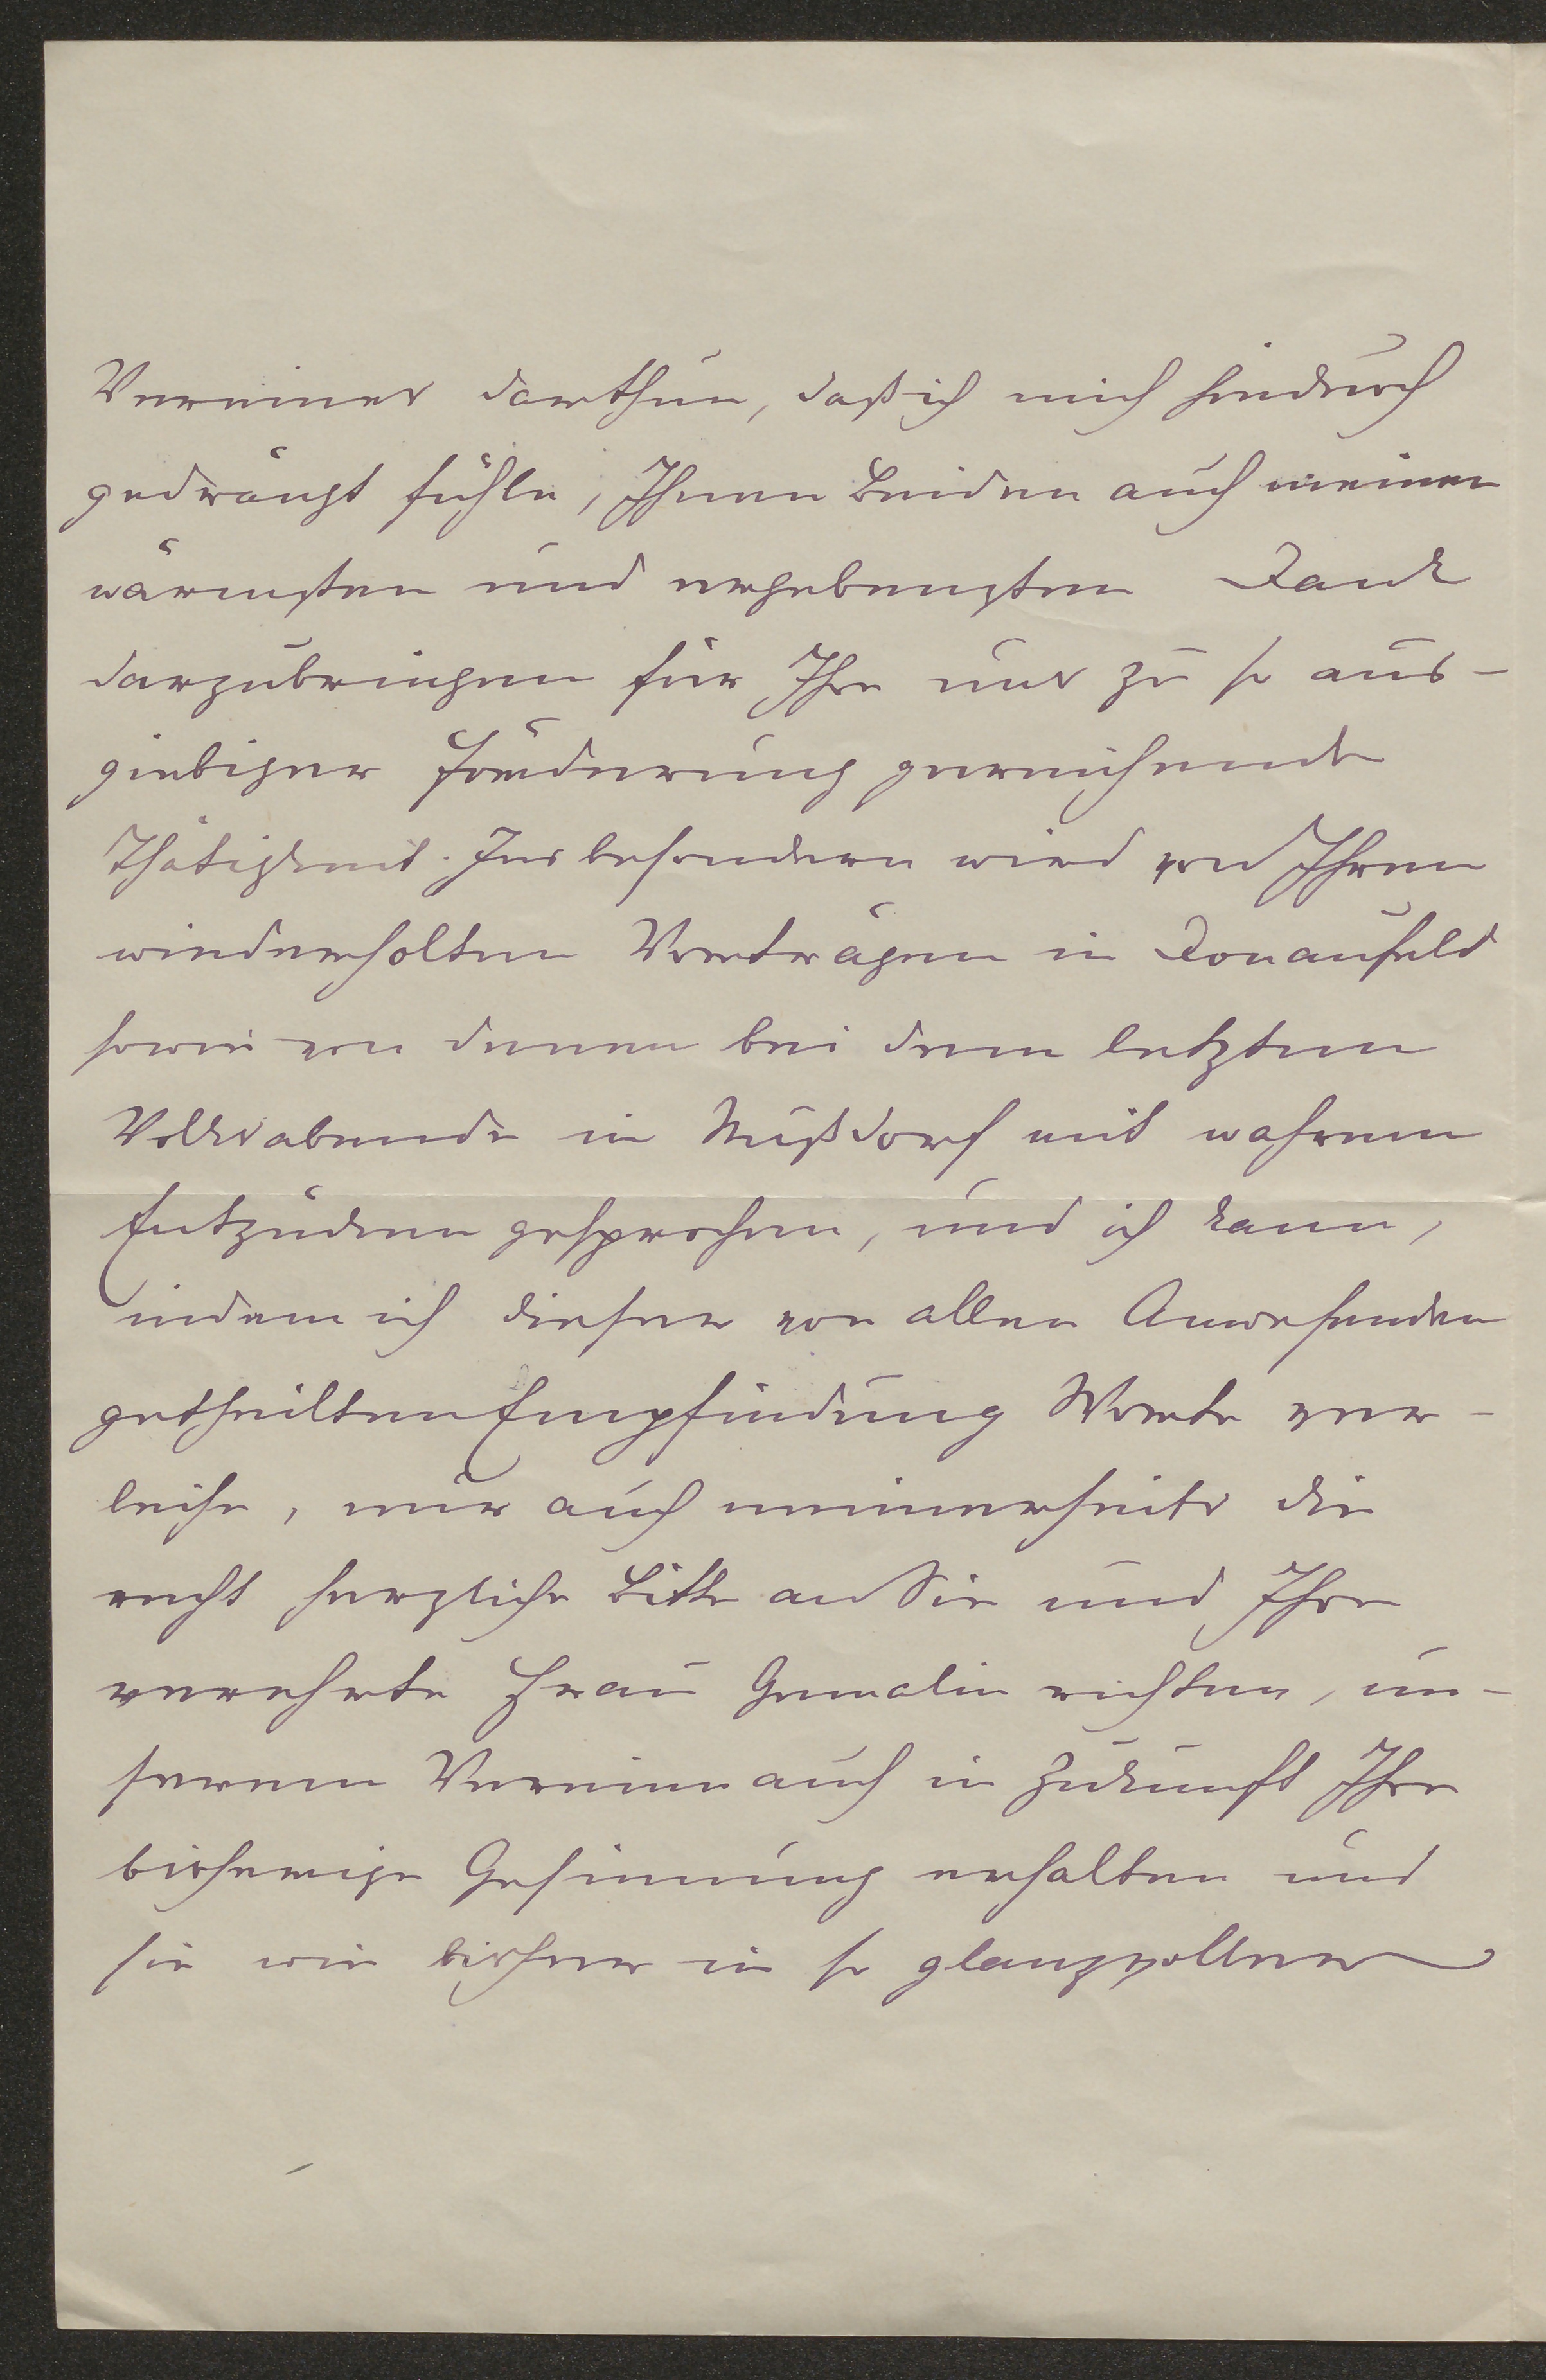 Vereines darthun, daß ich mich hiedurch
gedrängt fühle, Ihnen Beiden auch meinen
wärmsten und ergebensten Dank
darzubringen für Ihre uns zu so aus-
giebiger Förderung gereichende
Thätigkeit. Insbesondere wird von Ihren
wiederholten Vorträgen in Donaufeld
sowie von denen bei dem letzten
Volksabende in Nußdorf mit wahrem
Entzücken gesprochen, und ich kann,
indem ich dieser von allen Anwesenden
getheilten Empfindung Worte ver-
leihe, nur auch meinerseits die
recht herzliche Bitte an Sie und Ihre
verehrte Frau Gemalin richten, un-
serem Vereine auch in Zukunft Ihre
bisherige Gesinnung erhalten und
sie wie bisher in so glanzvoller